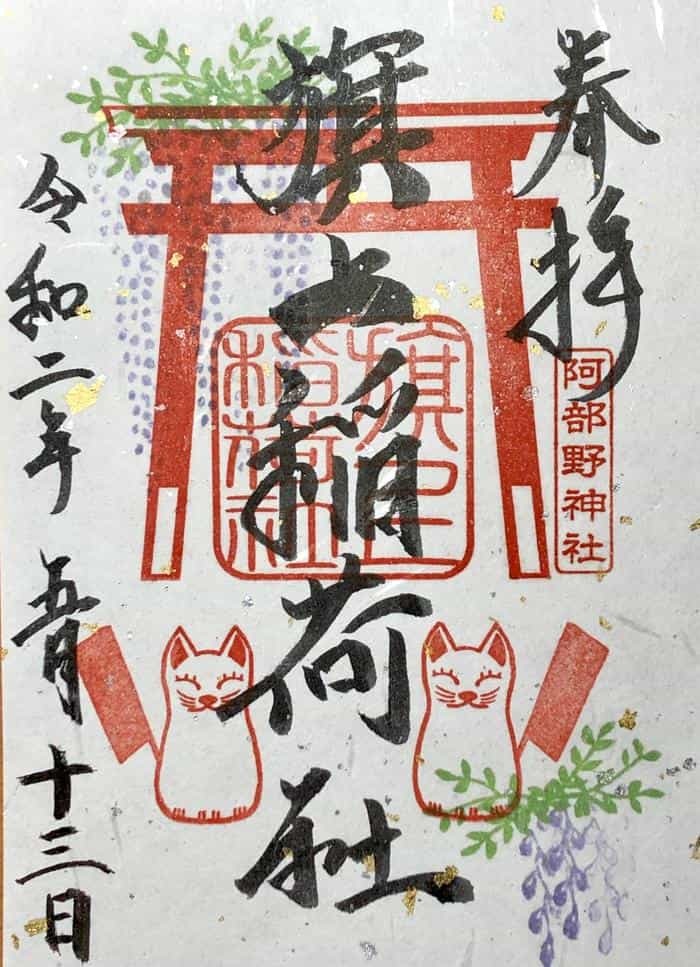 奉拝
阿部野神社
旗上稲荷社
旗上
稲荷社
令和二年五月十三日